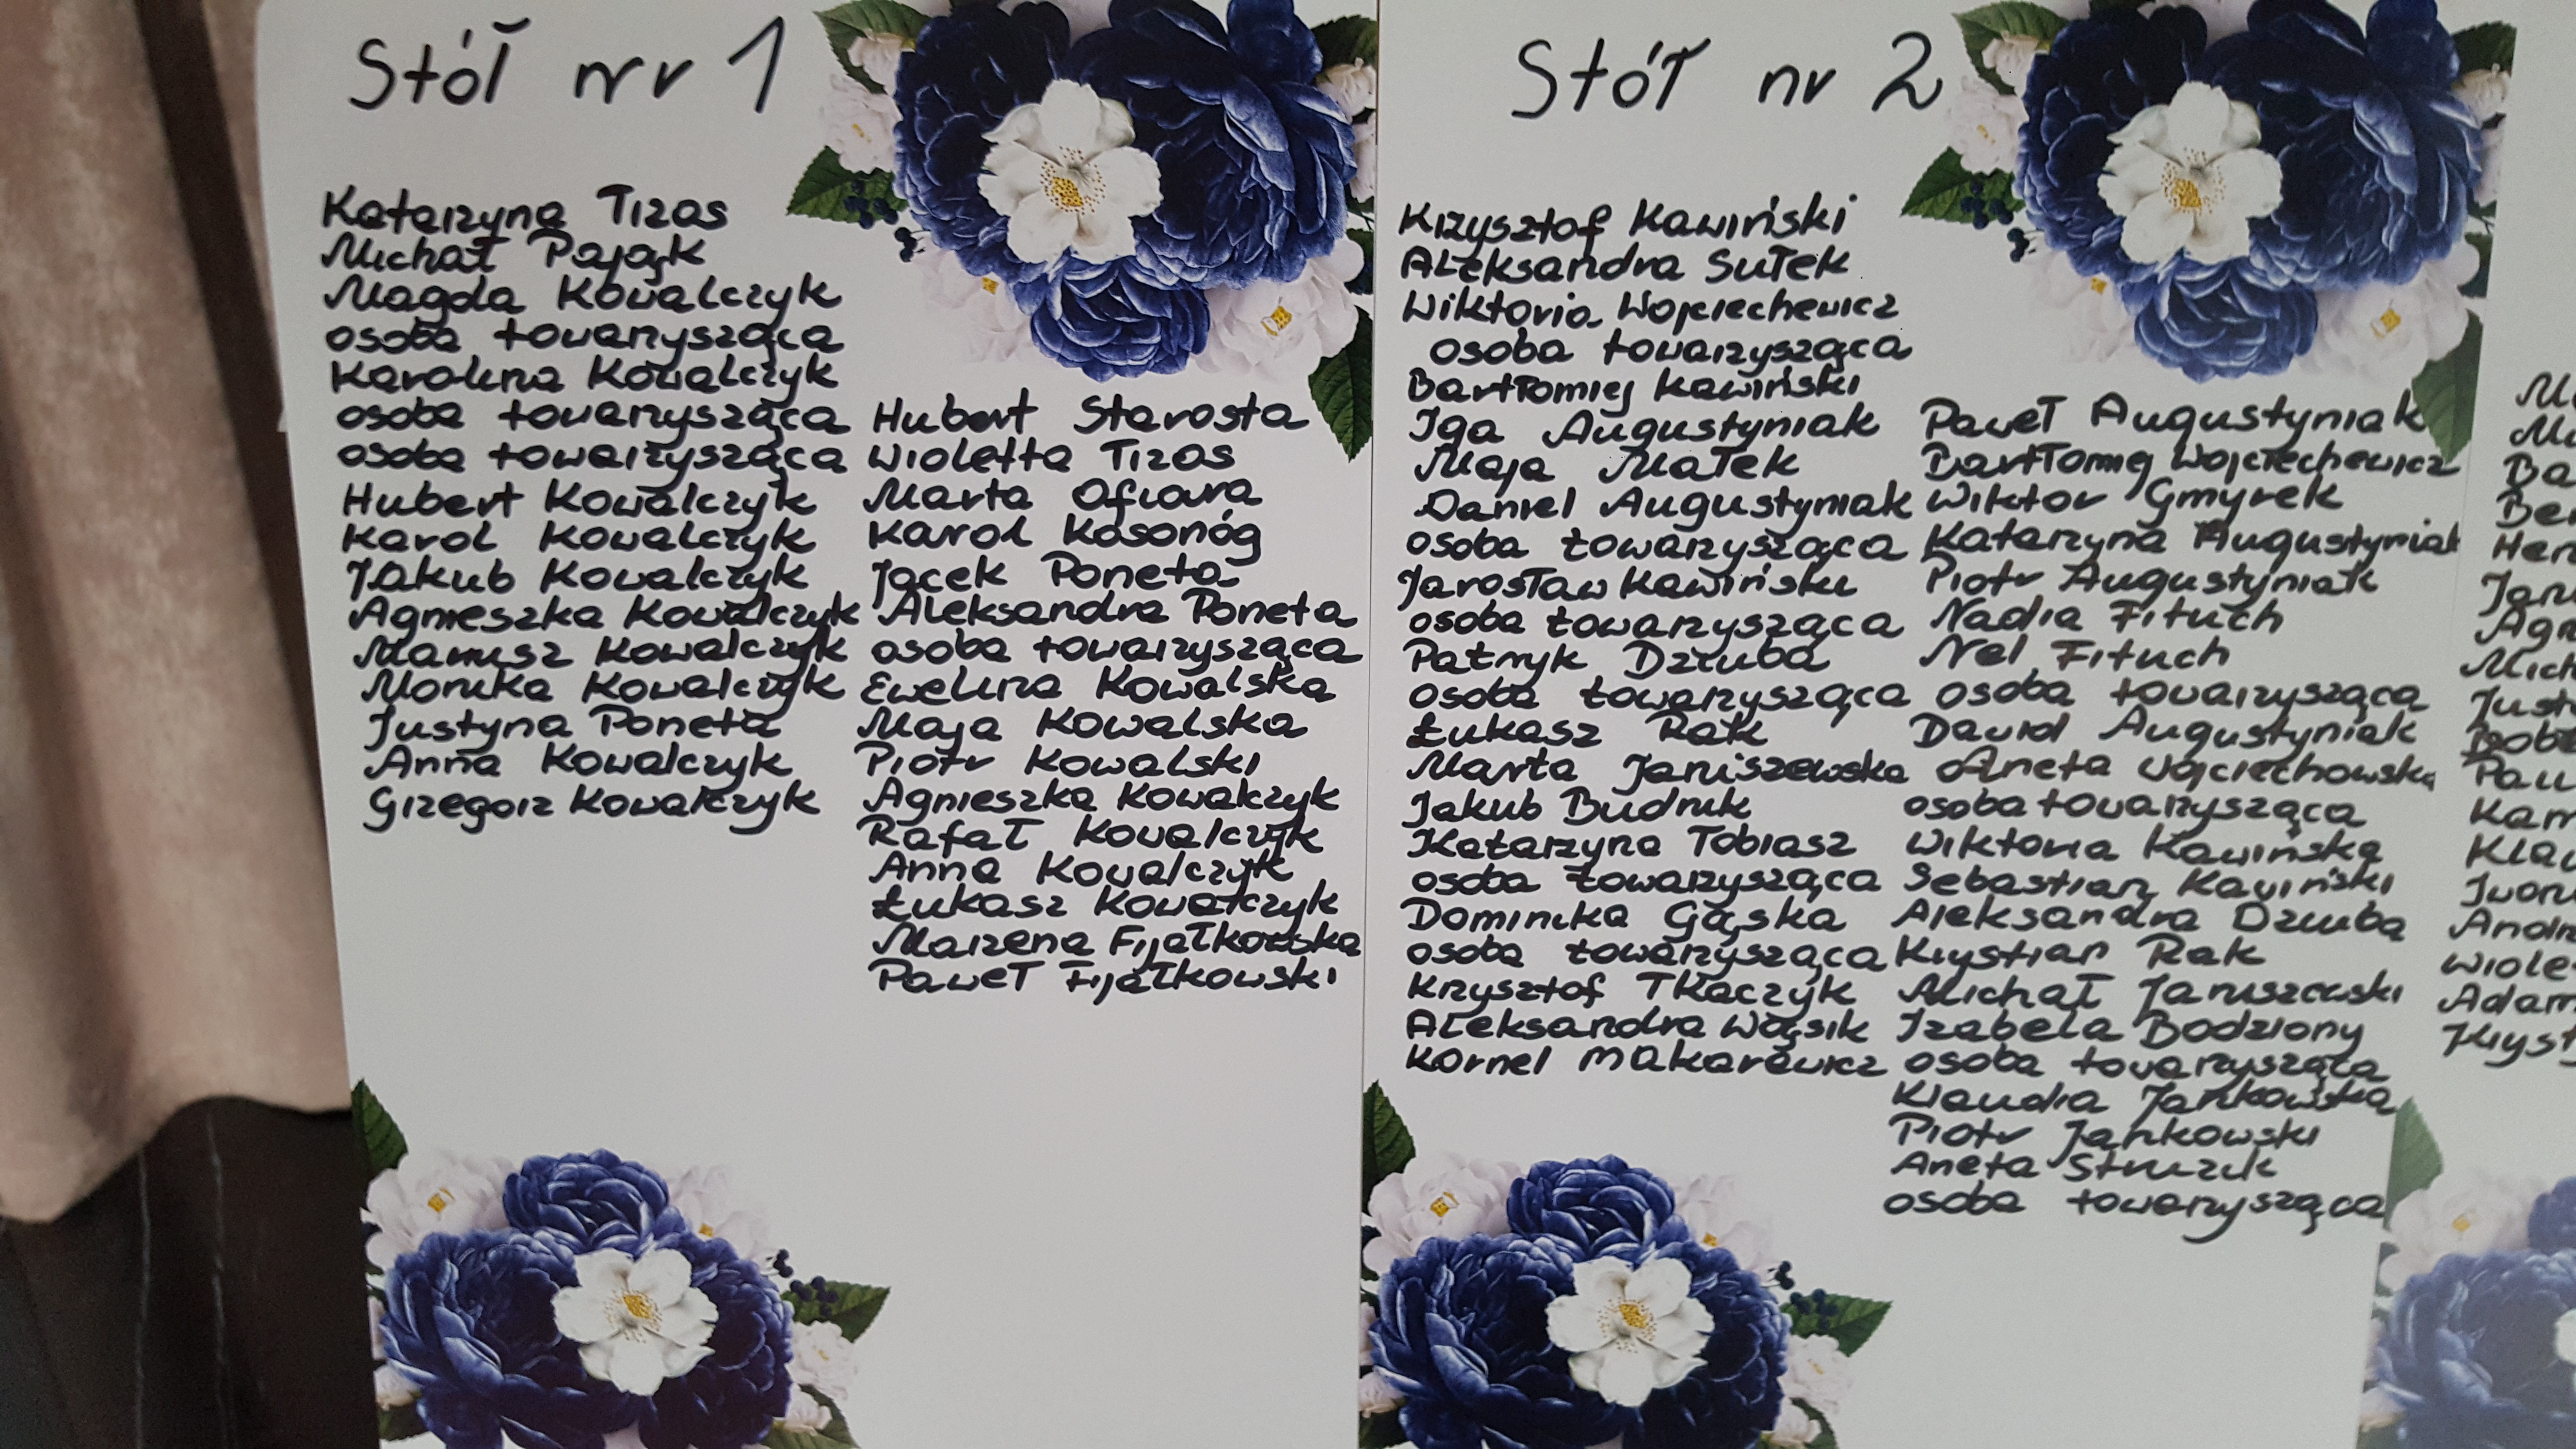 Stół nr 1
Katarzyna Tizas
Michał Pająk
Magda Kowalczyk
osoba towarzysząca
Karolina Kowalczyk
osoba towarzysząca
osoba towarzysząca
Hubert Kowalczyk
Karol Kowalczyk
Jakub Kowalczyk
Agnieszka Kowalczyk
Mariusz Kowalczyk
Monika Kowalczyk
Justyna Poneta
Anna Kowalczyk
Grzegorz Kowalczyk
Hubert Starosta
Wioletta Tizas
Marta Ofiara
Karol Kosonóg
Jacek Poneta
Aleksandra Poneta
osoba towarzysząca
Ewelina Kowalska
Maja Kowalska
Piotr Kowalski
Agnieszka Kowalczyk
Rafał Kowalczyk
Anna Kowalczyk
Łukasz Kowalczyk
Marzena Fijałkowska
Paweł Fijałkowski
Stół nr 2
Krzysztof Kawiński
Aleksandra Sułek
Wiktoria Wojciechewicz
osoba towarzysząca
Bartłomiej Kawiński
Iga Augustyniak
Maja Małek
Daniel Augustyniak
osoba towarzysząca
Jarosław Kawiński
osoba towarzysząca
Patryk Dziuba
osoba towarzysząca
Łukasz Rak
Marta Janiszewska
Jakub Budnik
Katarzyna Tobiasz
osoba towarzysząca
Dominika Gąska
osoba towarzysząca
Krzysztof Tkaczyk
Aleksandra Wąsik
Kornel Makarewicz
Paweł Augustyniak
Bartłomiej Wojciechewicz
Wiktor Gmyrek
Katarzyna Augustyniak
Piotr Augustyniak
Nadia Fituch
Nel Fituch
osoba towarzysząca
Dawid Augustyniak
Aneta Wojciechowska
osoba towarzysząca
Wiktoria Kawińska
Sebastian Kawiński
Aleksandra Dziuba
Krystian Rak
Michał Januszewski
Izabela Bodziony
osoba towarzysząca
Klaudia Jankowska
Piotr Jankowski
Aneta
osoba towarzysząca